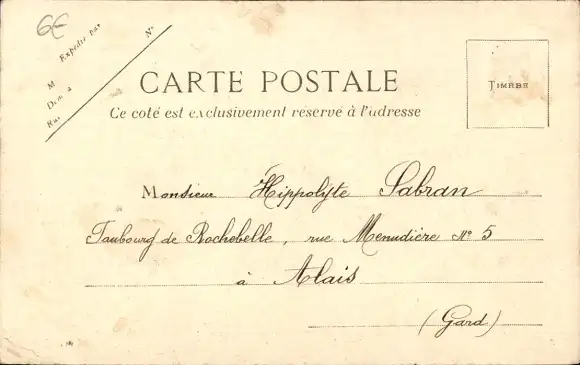 6€
Expédié par
M
Dem.t à
Rue
N°
CARTE POSTALE
Ce coté est exclusivement réservé à l'adresse
TIMBRE
Monsieur Hippolyte Sabran
Faubourg de Rochebelle, rue Menudière N° 5
à Alais
(Gard)